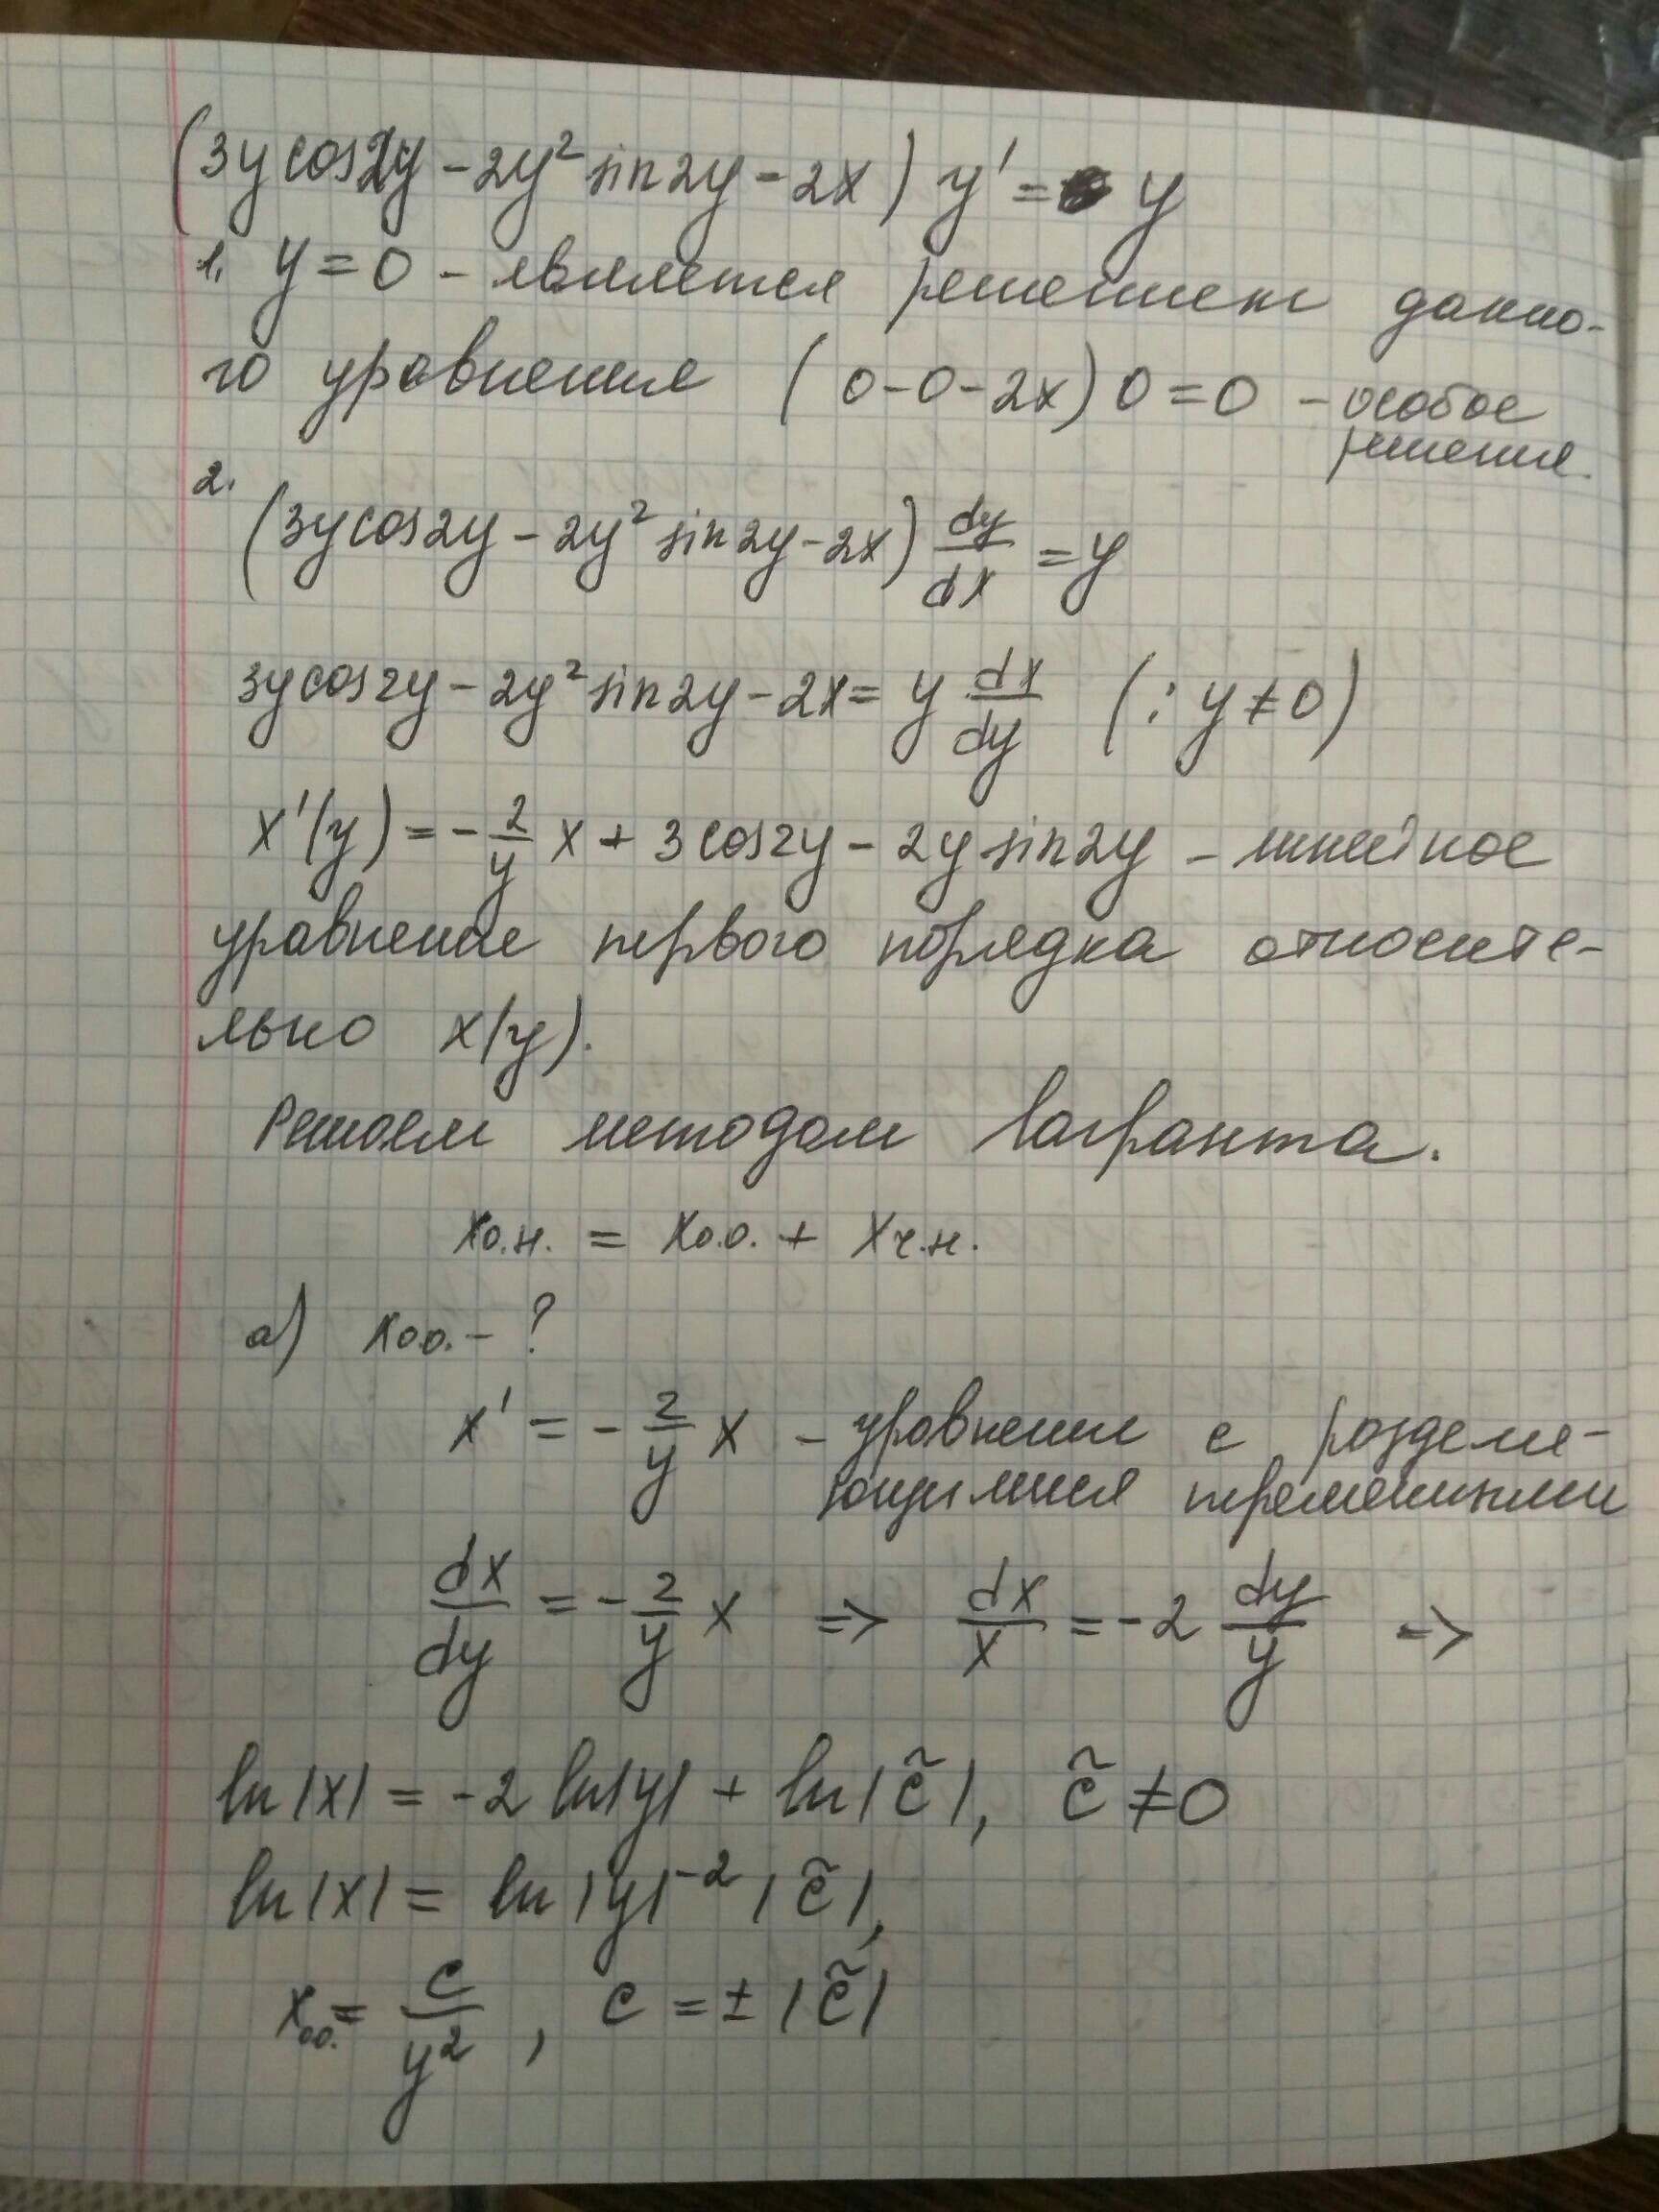 (3y cos2y - 2y² sin2y - 2x) y' = y
1. y = 0 - является решением данно-
го уравнения (0-0-2x)0=0 - особое
решение.
2.
(3y cos2y - 2y² sin2y - 2x) dy/dx = y
3y cos2y - 2y² sin2y - 2x = y dx/dy (: y ≠ 0)
x'(y) = - 2/y x + 3 cos2y - 2y sin2y - линейное
уравнение первого порядка относите-
льно x(y).
Решаем методом Лагранжа.
xо.н. = xо.о. + xч.н.
а) xо.о. - ?
x' = - 2/y x - уравнение с разделя-
ющимися переменными
dx/dy = - 2/y x => dx/x = -2 dy/y =>
ln|x| = -2 ln|y| + ln|c̃|, c̃ ≠ 0
ln|x| = ln|y|⁻²|c̃|,
xо.о. = c/y², c = ±|c̃|